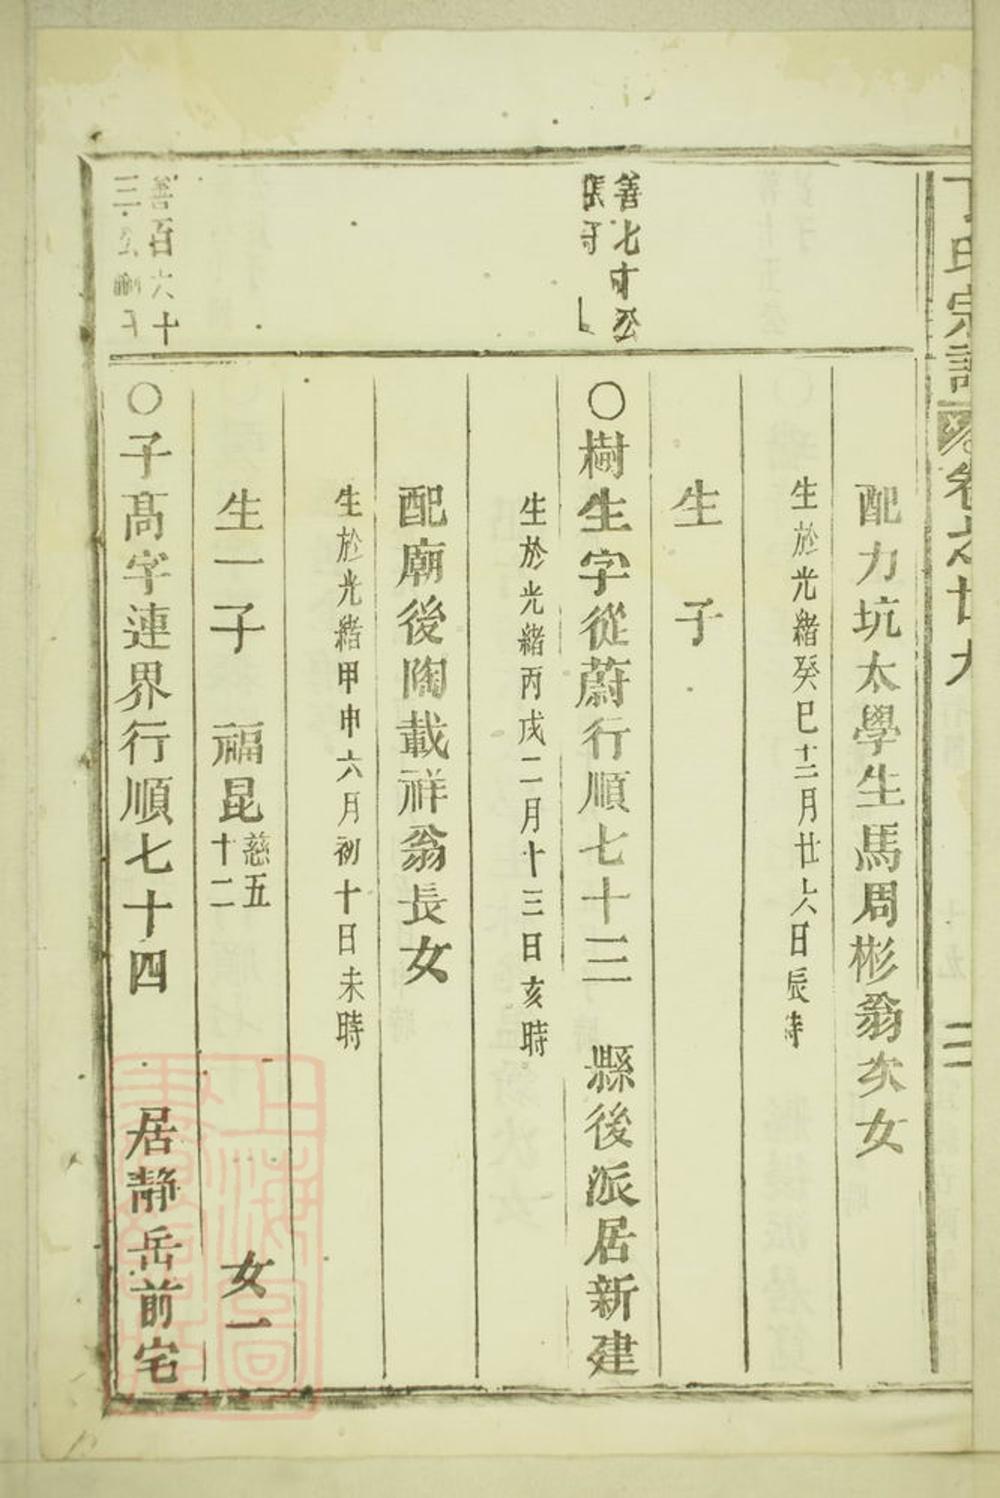 丁氏宗譜 卷之廿九 二
配力坑太學生馬周彬翁次女
生於光緒癸巳十二月廿六日辰時
生 子
善七十公
○樹生字從蔚行順七十三 縣後派居新建
生於光緒丙戌二月十三日亥時
配廟後陶載祥翁長女
生於光緒甲申六月初十日未時
生一子 福昆慈五十二 女一
善百六十
三公
○子高字連界行順七十四 居靜岳前宅